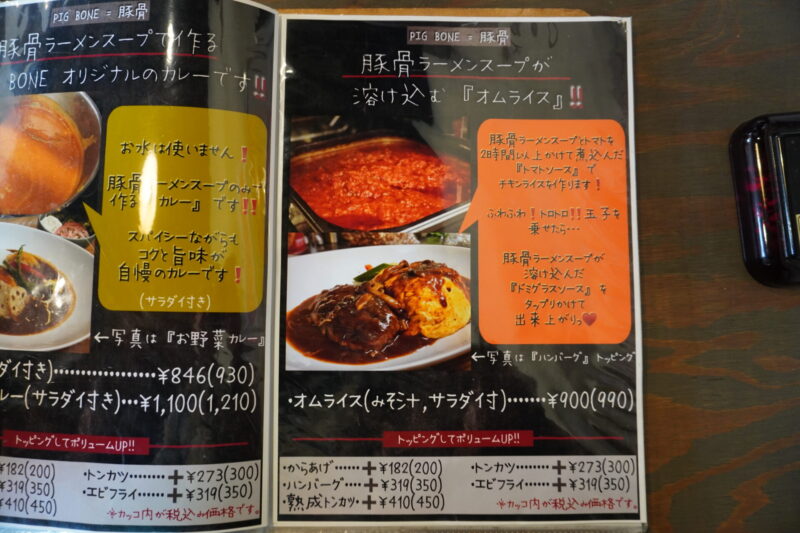 PIG BONE = 豚骨
豚骨ラーメンスープで作る
BONE オリジナルのカレーです!!
お水は使いません!
豚骨ラーメンスープのみで
作る『カレー』です!!
スパイシーながらも
コクと旨味が
自慢のカレーです!
(サラダイ付き)
←写真は『お野菜カレー』
ダイ付き)………………¥846(930)
レー(サラダイ付き)…¥1,100(1,210)
トッピングしてボリュームUP!!
¥182(200)
¥319(350)
¥410(450)
・トンカツ……＋¥273(300)
・エビフライ……＋¥319(350)
※カッコ内が税込み価格です。
PIG BONE = 豚骨
豚骨ラーメンスープが
溶け込む『オムライス』!!
豚骨ラーメンスープとトマトを
2時間以上かけて煮込んだ
『トマトソース』で
チキンライスを作ります!
ふわふわ!トロトロ!!玉子を
乗せたら…
豚骨ラーメンスープが
溶け込んだ
『ドミグラスソース』を
タップリかけて
出来上がりっ♥
←写真は『ハンバーグ』トッピング
・オムライス(みそ汁,サラダイ付)……¥900(990)
トッピングしてボリュームUP!!
・からあげ……＋¥182(200)
・ハンバーグ…＋¥319(350)
・熟成トンカツ…＋¥410(450)
・トンカツ……＋¥273(300)
・エビフライ……＋¥319(350)
※カッコ内が税込み価格です。